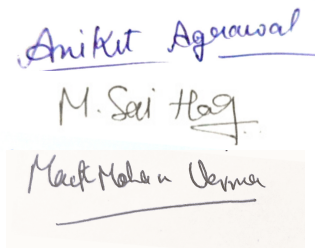 Aniket Agrawal
M. Sai Hag
MackMohan Verma